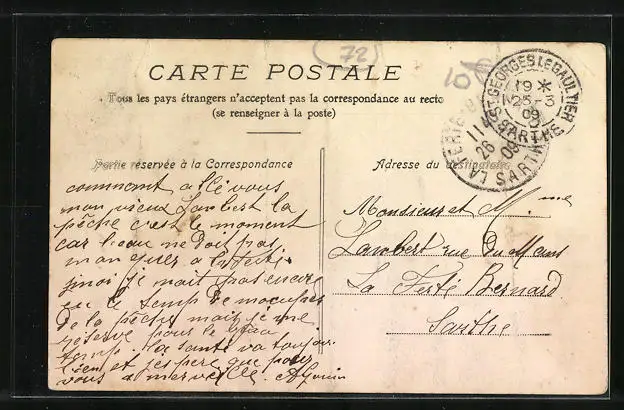 72
CARTE POSTALE
Tous les pays étrangers n'acceptent pas la correspondance au recto
(se renseigner à la poste)
ST GEORGES LE GAULTIER
19 *
25-3
09
SARTHE
LA FERTE
11
26
09
SARTHE
Partie réservée à la Correspondance
commant allé vous
mon vieux Lambert la
pêche c'est le moment
car l'eau ne doit pas
manquer a la ferté
je nait pas encore
eu le temp de mocuper
de la pêche mais je me
réserve pour le beau
temp. la santé va toujour
bien et j'espère que pour
vous a merveille
Adresse du destinataire
Monsieur et Mme
Lambert rue du Mans
La Ferté Bernard
Sarthe